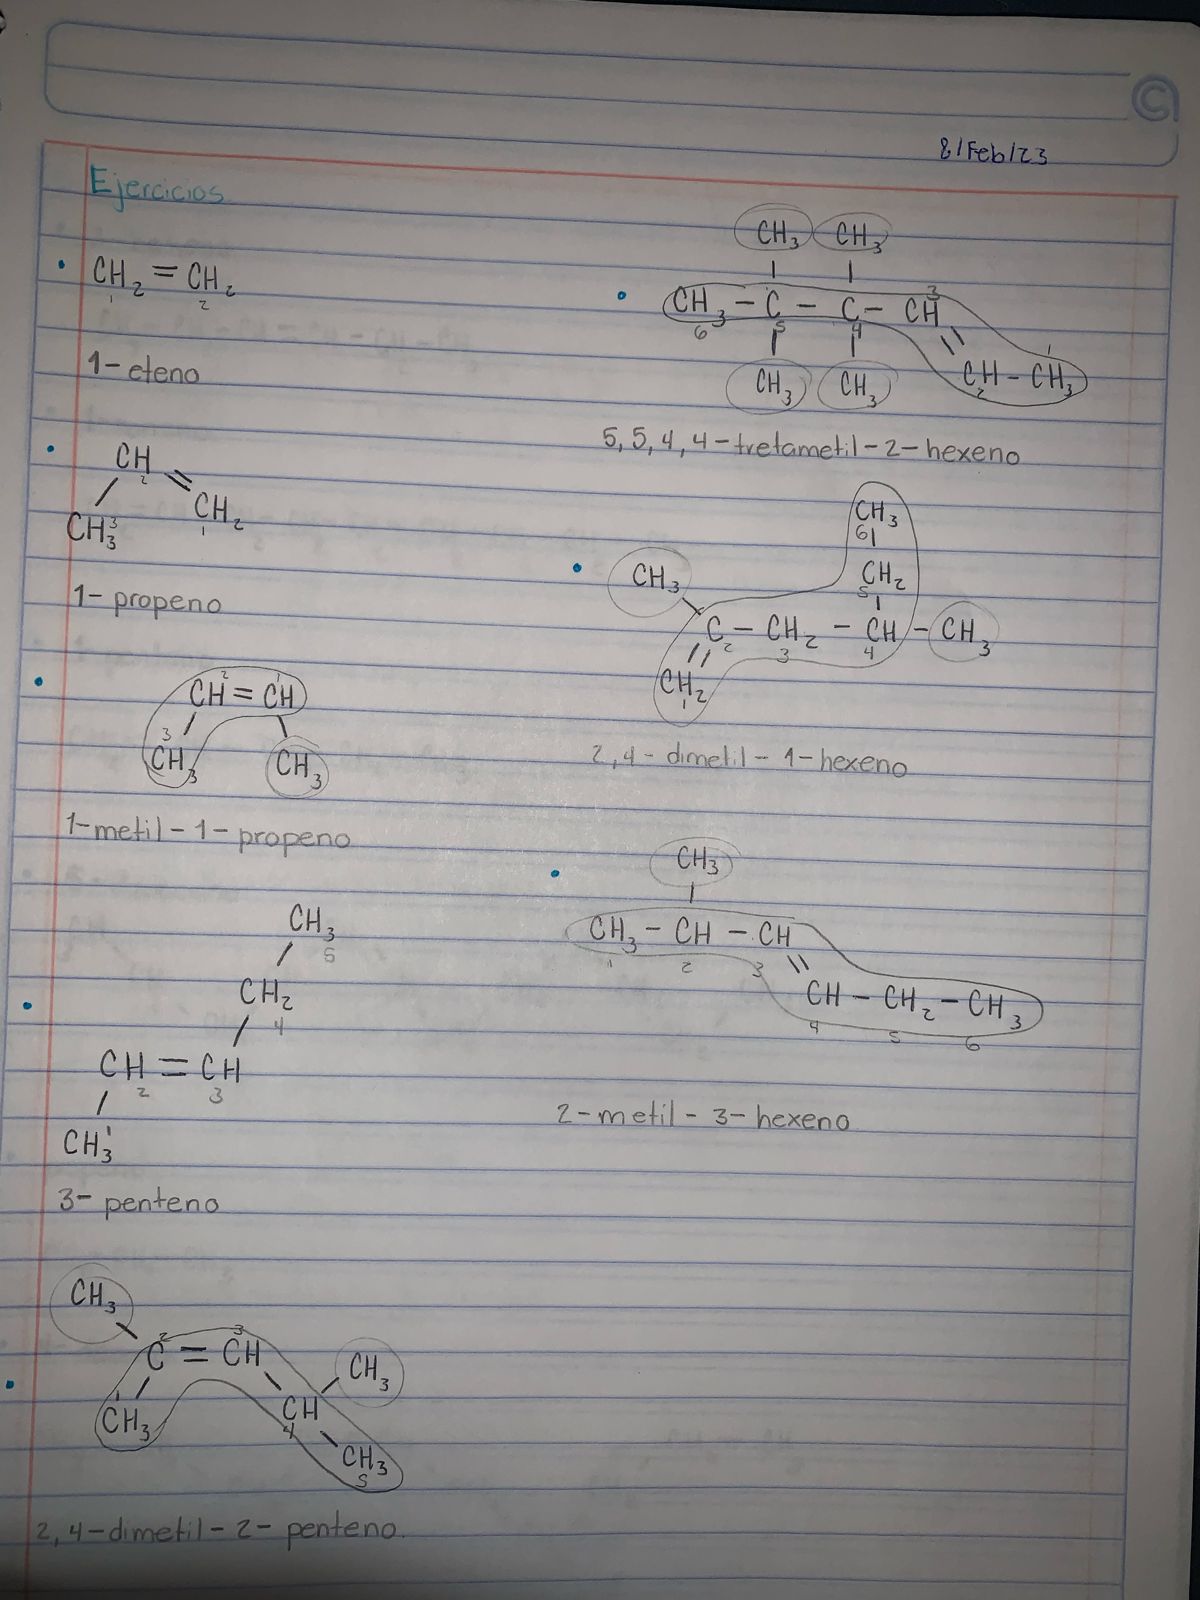 8/Feb/23
Ejercicios
CH2 = CH2
1 2
1- eteno
CH
2
CH3 CH2
3 1
1- propeno
2 1
CH = CH
3
CH3 CH3
1-metil-1-propeno
CH3
5
CH2
4
CH = CH
2 3
CH3
1
3- penteno
CH3
2 3
C = CH
CH3
1
CH3 CH
4
CH3
5
2,4-dimetil-2-penteno.
CH3 CH3
3
CH3 - C - C - CH
6 5 4
1
CH3 CH3 CH - CH3
2
5,5,4,4-tretametil-2-hexeno
CH3
6
CH3 CH2
5
C - CH2 - CH - CH3
2 3 4
CH2
1
2,4-dimetil-1-hexeno
CH3
CH3 - CH - CH
1 2 3
CH - CH2 - CH3
4 5 6
2-metil-3-hexeno